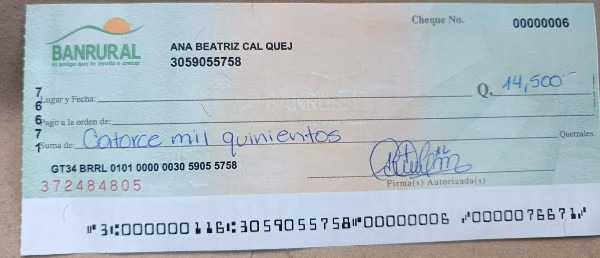 Cheque No. 00000006
BANRURAL
El amigo que te ayuda a crecer
ANA BEATRIZ CAL QUEJ
3059055758
Lugar y Fecha:
Q. 14,500
Pago a la orden de:
Suma de: Catorce mil quinientos Quetzales.
76671
GT34 BRRL 0101 0000 0030 5905 5758
372484805
Firma(s) Autorizada(s)
⑈3⑆000000116⑆3059055758⑈00000006 ⑇0000076671⑇